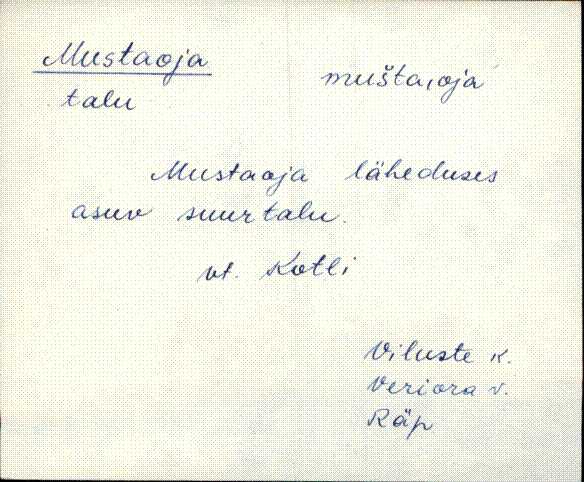 Mustaoja mušta,oja
talu
Mustaoja läheduses
asuv suurtalu.
vt. Kotli
Viluste k.
Veriora v.
Räp